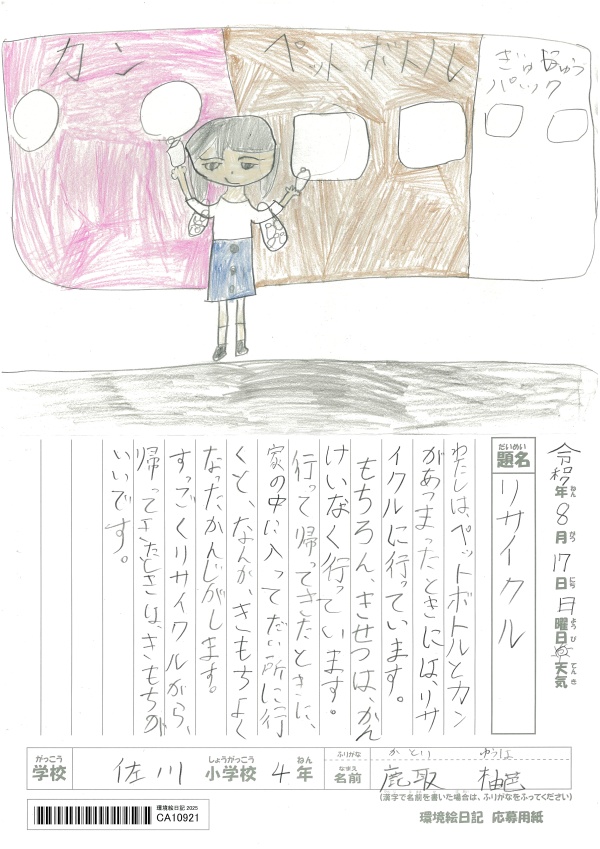 カン
ペットボトル
ぎゅうにゅう
パック
令和7年8月17日日曜日天気
ねん
がつ
にち
ようび
てんき
だいめい
題名
リサイクル
わたしは、ペットボトルとカン
があつまったときには、リサ
イクルに行っています。
もちろん、きせつは、かん
けいなく行っています。
行って帰ってきたときに、
家の中に入ってだい所に行
くと、なんか、きもちよく
なったかんじがします。
すっごくリサイクルがら、
帰ってきたときは、きもちが
いいです。
がっこう
学校
佐川
しょうがっこう
小学校
4
ねん
年
ふりがな
かとり
なまえ
名前
鹿取 柚邑
(漢字で名前を書いた場合は、ふりがなをふってください)
環境絵日記 2025
CA10921
環境絵日記 応募用紙